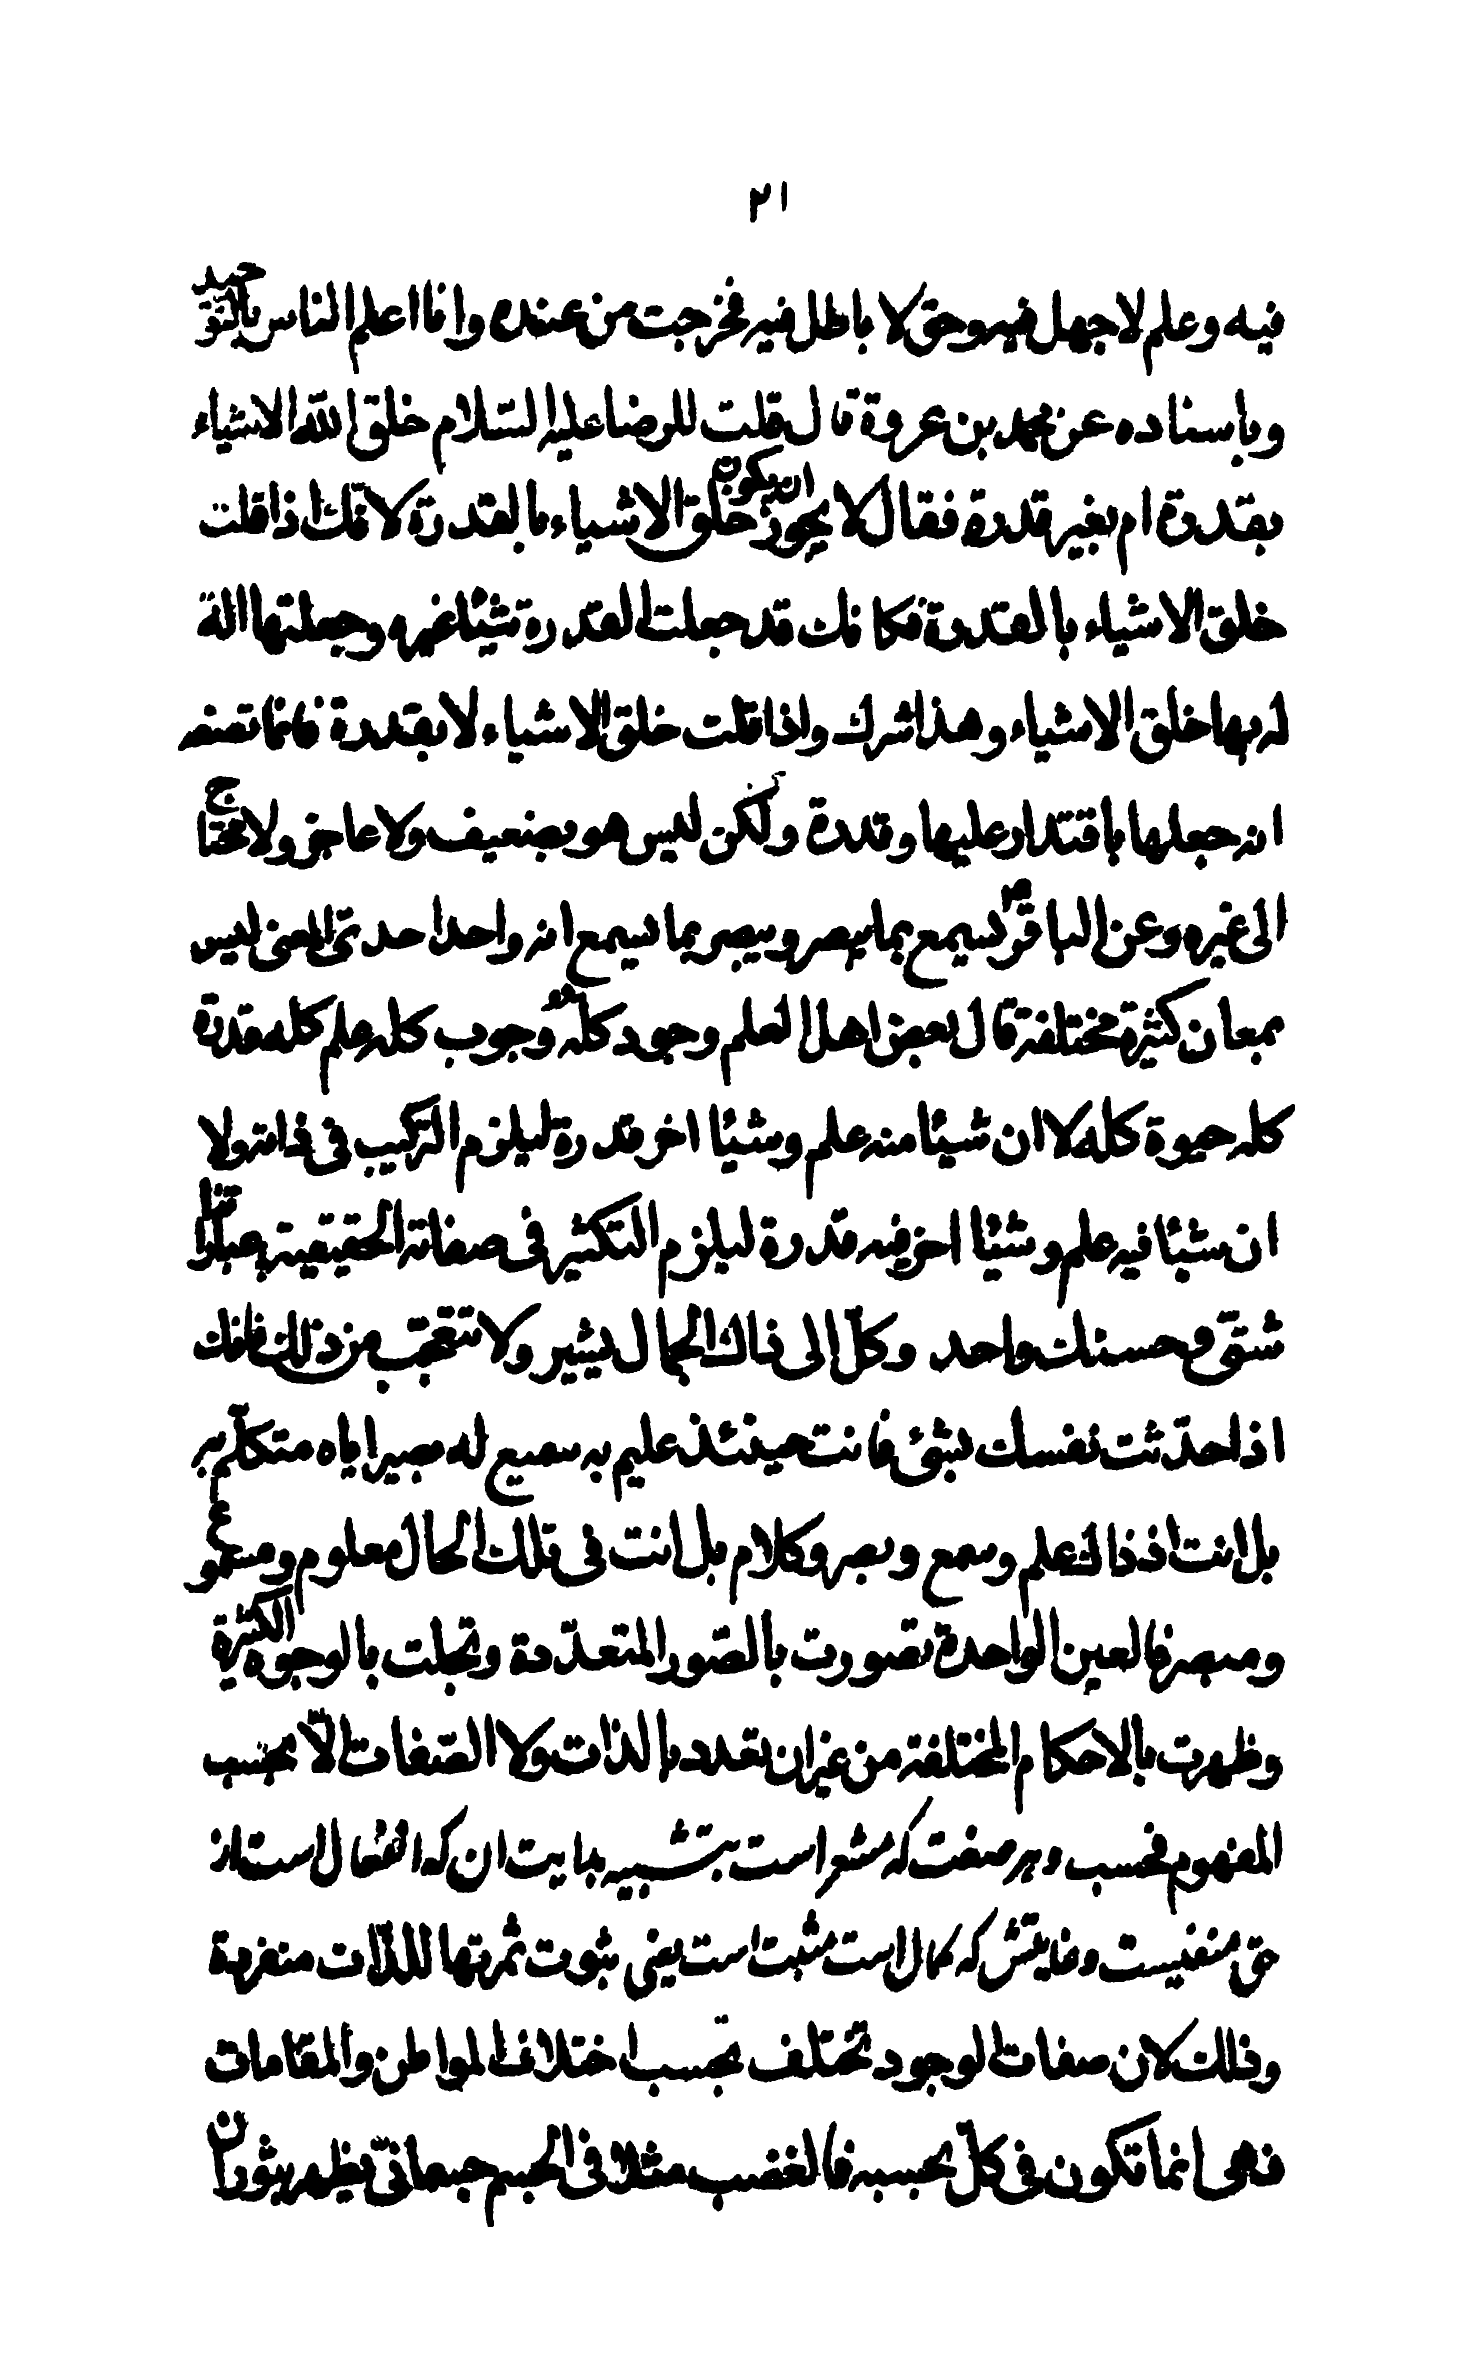 ٢١
فيه وعلم لا جهل فيه وحق لا باطل فيه فخرجت من عنده وانا اعلم الناس بالتوحيد
وباسناده عن محمد بن عروة قال قلت للرضا عليه السّلام خلق الله الاشياء
بقدرة ام بغير قدرة فقال لا يجوز ان يكون خلق الاشياء بالقدرة لانّك اذا قلت
خلق الاشياء بالقدرة فكانك قد جعلت القدرة شيئا غيره وجعلتها الة
له بها خلق الاشياء وهذا شرك واذا قلت خلق الاشياء لا بقدرة فانما تصفه
انه جعلها باقتدار عليها وقدرة ولكن ليس هو بضعيف ولا عاجز ولا محتاج
الى غيره وعن الباقر يسمع بما يبصر ويبصر بما يسمع انه واحد احدىّ المعنى ليس
بمعان كثيرة مختلفة قال بعض اهل العلم وجود كله وجوب كله علم كله قدرة
كله حيوة كله لا ان شيئا منه علم وشيئا اخر قدرة ليلزم التركيب فى ذاته ولا
ان شيئا فيه علم وشيئا اخر فيه قدرة ليلزم التكثير فى صفاته الحقيقية عباراتنا
شتىّ وحسنك واحد وكلّ الى ذاك الجمال يشير ولا تتعجّب من ذلك فانك
اذا حدّثت نفسك بشئ فانت حينئذ عليم به سميع له بصير اياه متكلّم به
بل انت اذ ذاك علم وسمع وبصر وكلام بل انت فى تلك الحال معلوم ومسموع
ومبصر فالعين الواحدة تصورت بالصّور المتعدّدة وتجلت بالوجوه الكثيرة
وظهرت بالاحكام المختلفة من غير ان تعدد بالذات ولا الصّفات الّا بحسب
المفهوم فحسب وهر صفت كه مشعر است بتشبيه بدايت ان كه انفعال است از
حق منفيست وغايتش كه كمال است مثبت است يعنى ثبوت ثمرتها للذّات منفردة
وذلك لان صفات الوجود تختلف بحسب اختلاف المواطن والمقامات
فهى انما تكون فى كلّ بحسبه فالغضب مثلا فى الجسم جسمانىّ يظهر بثوران